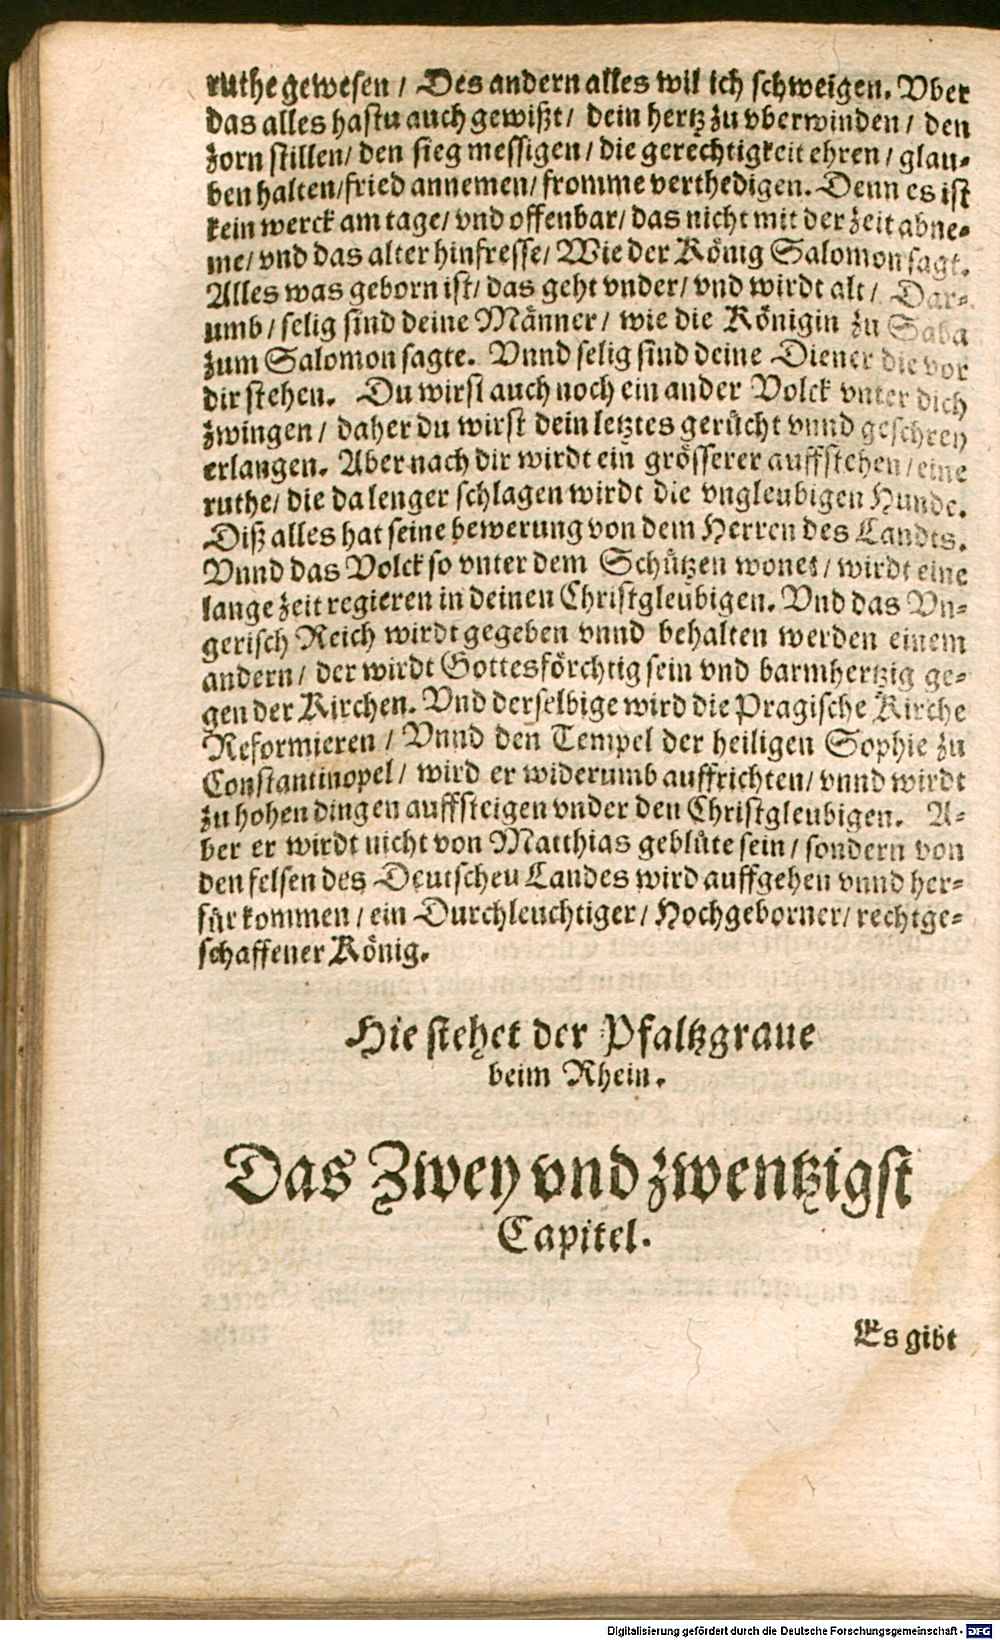 ruthe gewesen / Des andern alles wil ich schweigen. Vber
das alles hastu auch gewißt / dein hertz zu vberwinden / den
zorn stillen / den sieg messigen / die gerechtigkeit ehren / glau-
ben halten / fried annemen / fromme verthedigen. Denn es ist
kein werck am tage / vnd offenbar / das nicht mit der zeit abne-
me / vnd das alter hinfresse / Wie der König Salomon sagt.
Alles was geborn ist / das geht vnder / vnd wirdt alt / Dar-
umb / selig sind deine Männer / wie die Königin zu Saba
zum Salomon sagte. Vnnd selig sind deine Diener die vor
dir stehen. Du wirst auch noch ein ander Volck vnter dich
zwingen / daher du wirst dein letztes gerücht vnnd geschrey
erlangen. Aber nach dir wirdt ein grösserer auffstehen / eine
ruthe / die da lenger schlagen wirdt die vngleubigen Hunde.
Diß alles hat seine bewerung von dem Herren des Landts.
Vnnd das Volck so vnter dem Schützen wonet / wirdt eine
lange zeit regieren in deinen Christgleubigen. Vnd das Vn-
gerisch Reich wirdt gegeben vnnd behalten werden einem
andern / der wirdt Gottesförchtig sein vnd barmhertzig ge-
gen der Kirchen. Vnd derselbige wird die Pragische Kirche
Reformieren / Vnnd den Tempel der heiligen Sophie zu
Constantinopel / wird er widerumb auffrichten / vnnd wirdt
zu hohen dingen auffsteigen vnder den Christgleubigen. A-
ber er wirdt nicht von Matthias geblüte sein / sondern von
den felsen des Deutschen Landes wird auffgehen vnnd her-
für kommen / ein Durchleuchtiger / Hochgeborner / rechtge-
schaffener König.
Hie stehet der Pfaltzgraue
beim Rhein.
Das Zwey vnd zwentzigst
Capitel.
Es gibt
Digitalisierung gefördert durch die Deutsche Forschungsgemeinschaft - DFG